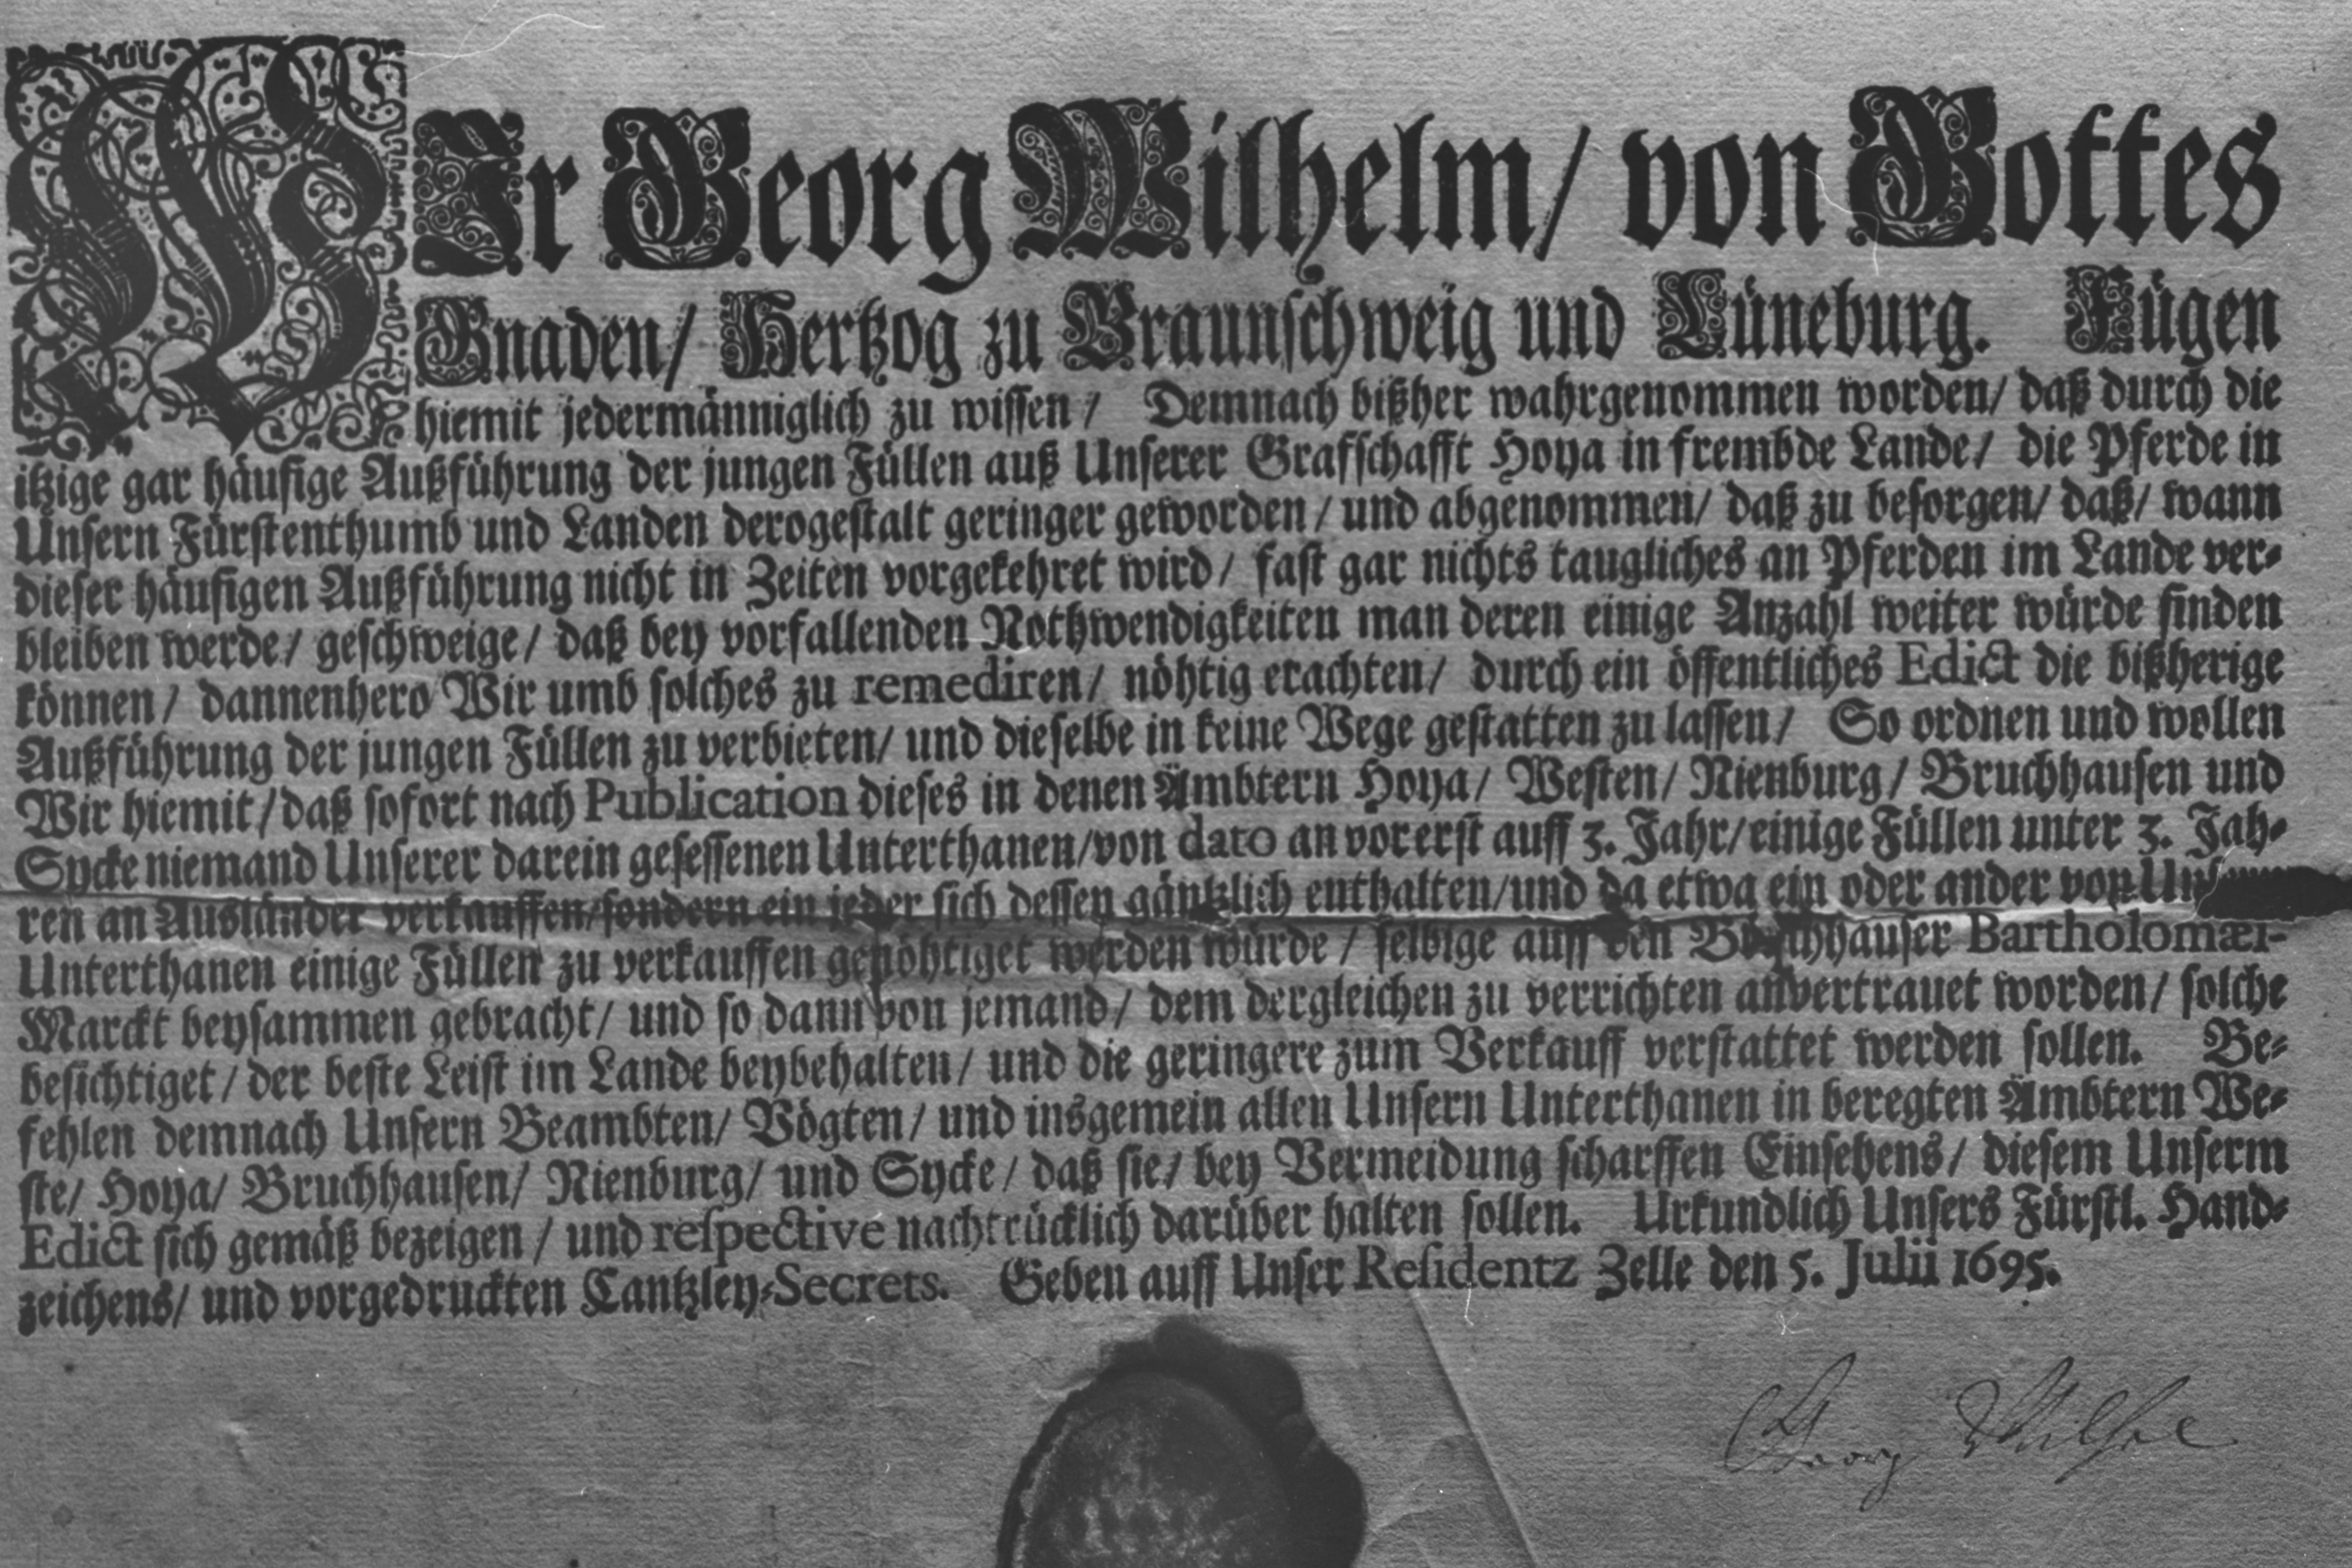 WIr Georg Wilhelm/ von Gottes
Gnaden/ Hertzog zu Braunschweig und Lüneburg. Fügen
hiemit jedermänniglich zu wissen/ Demnach bißher wahrgenommen worden/ daß durch die
itzige gar häufige Außführung der jungen Füllen auß Unserer Grafschafft Hoya in frembde Lande/ die Pferde in
Unsern Fürstenthumb und Landen derogestalt geringer geworden/ und abgenommen/ daß zu besorgen/ daß/ wann
dieser häufigen Außführung nicht in Zeiten vorgekehret wird/ fast gar nichts taugliches an Pferden im Lande ver-
bleiben werde/ geschweige/ daß bey vorfallenden Nothwendigkeiten man deren einige Anzahl weiter würde finden
können/ dannenhero Wir umb solches zu remediren/ nöhtig erachten/ durch ein öffentliches Edict die bißherige
Außführung der jungen Füllen zu verbieten/ und dieselbe in keine Wege gestatten zu lassen/ So ordnen und wollen
Wir hiemit/ daß sofort nach Publication dieses in denen Ämbtern Hoya/ Westen/ Nienburg/ Bruchhausen und
Sycke niemand Unserer darein gesessenen Unterthanen/ von dato an vorerst auff 3. Jahr/ einige Füllen unter 3. Jah-
ren an Ausländer verkauffen/ sondern ein jeder sich dessen gäntzlich enthalten/ und da etwa ein oder ander von
Unterthanen einige Füllen zu verkauffen genöhtiget werden würde/ selbige auff den Bruchhauser Bartholomæi-
Marckt beysammen gebracht/ und so dann von jemand/ dem dergleichen zu verrichten anvertrauet worden/ solche
besichtiget/ der beste Leist im Lande beybehalten/ und die geringere zum Verkauff verstattet werden sollen. Be-
fehlen demnach Unsern Beambten/ Vögten/ und insgemein allen Unsern Unterthanen in beregten Ämbtern We-
ste/ Hoya/ Bruchhausen/ Nienburg/ und Sycke/ daß sie/ bey Vermeidung scharffen Einsehens/ diesem Unserm
Edict sich gemäß bezeigen/ und respective nachtrücklich darüber halten sollen. Urkundlich Unsers Fürstl. Hand-
zeichens/ und vorgedruckten Cantzley-Secrets. Geben auff Unser Residentz Zelle den 5. Julii 1695.
Georg Wilhel